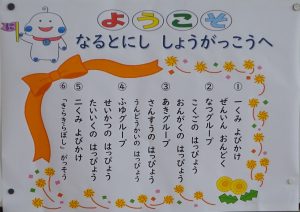 ようこそ
なるとにし しょうがっこうへ
① 一くみ よびかけ
ぜんいん おんどく
② なつグループ
こくごの はっぴょう
おんがくの はっぴょう
③ あきグループ
さんすうの はっぴょう
うんどうかいの はっぴょう
④ ふゆグループ
せいかつの はっぴょう
たいいくの はっぴょう
⑤ 二くみ よびかけ
⑥ 「きらきらぼし」がっそう